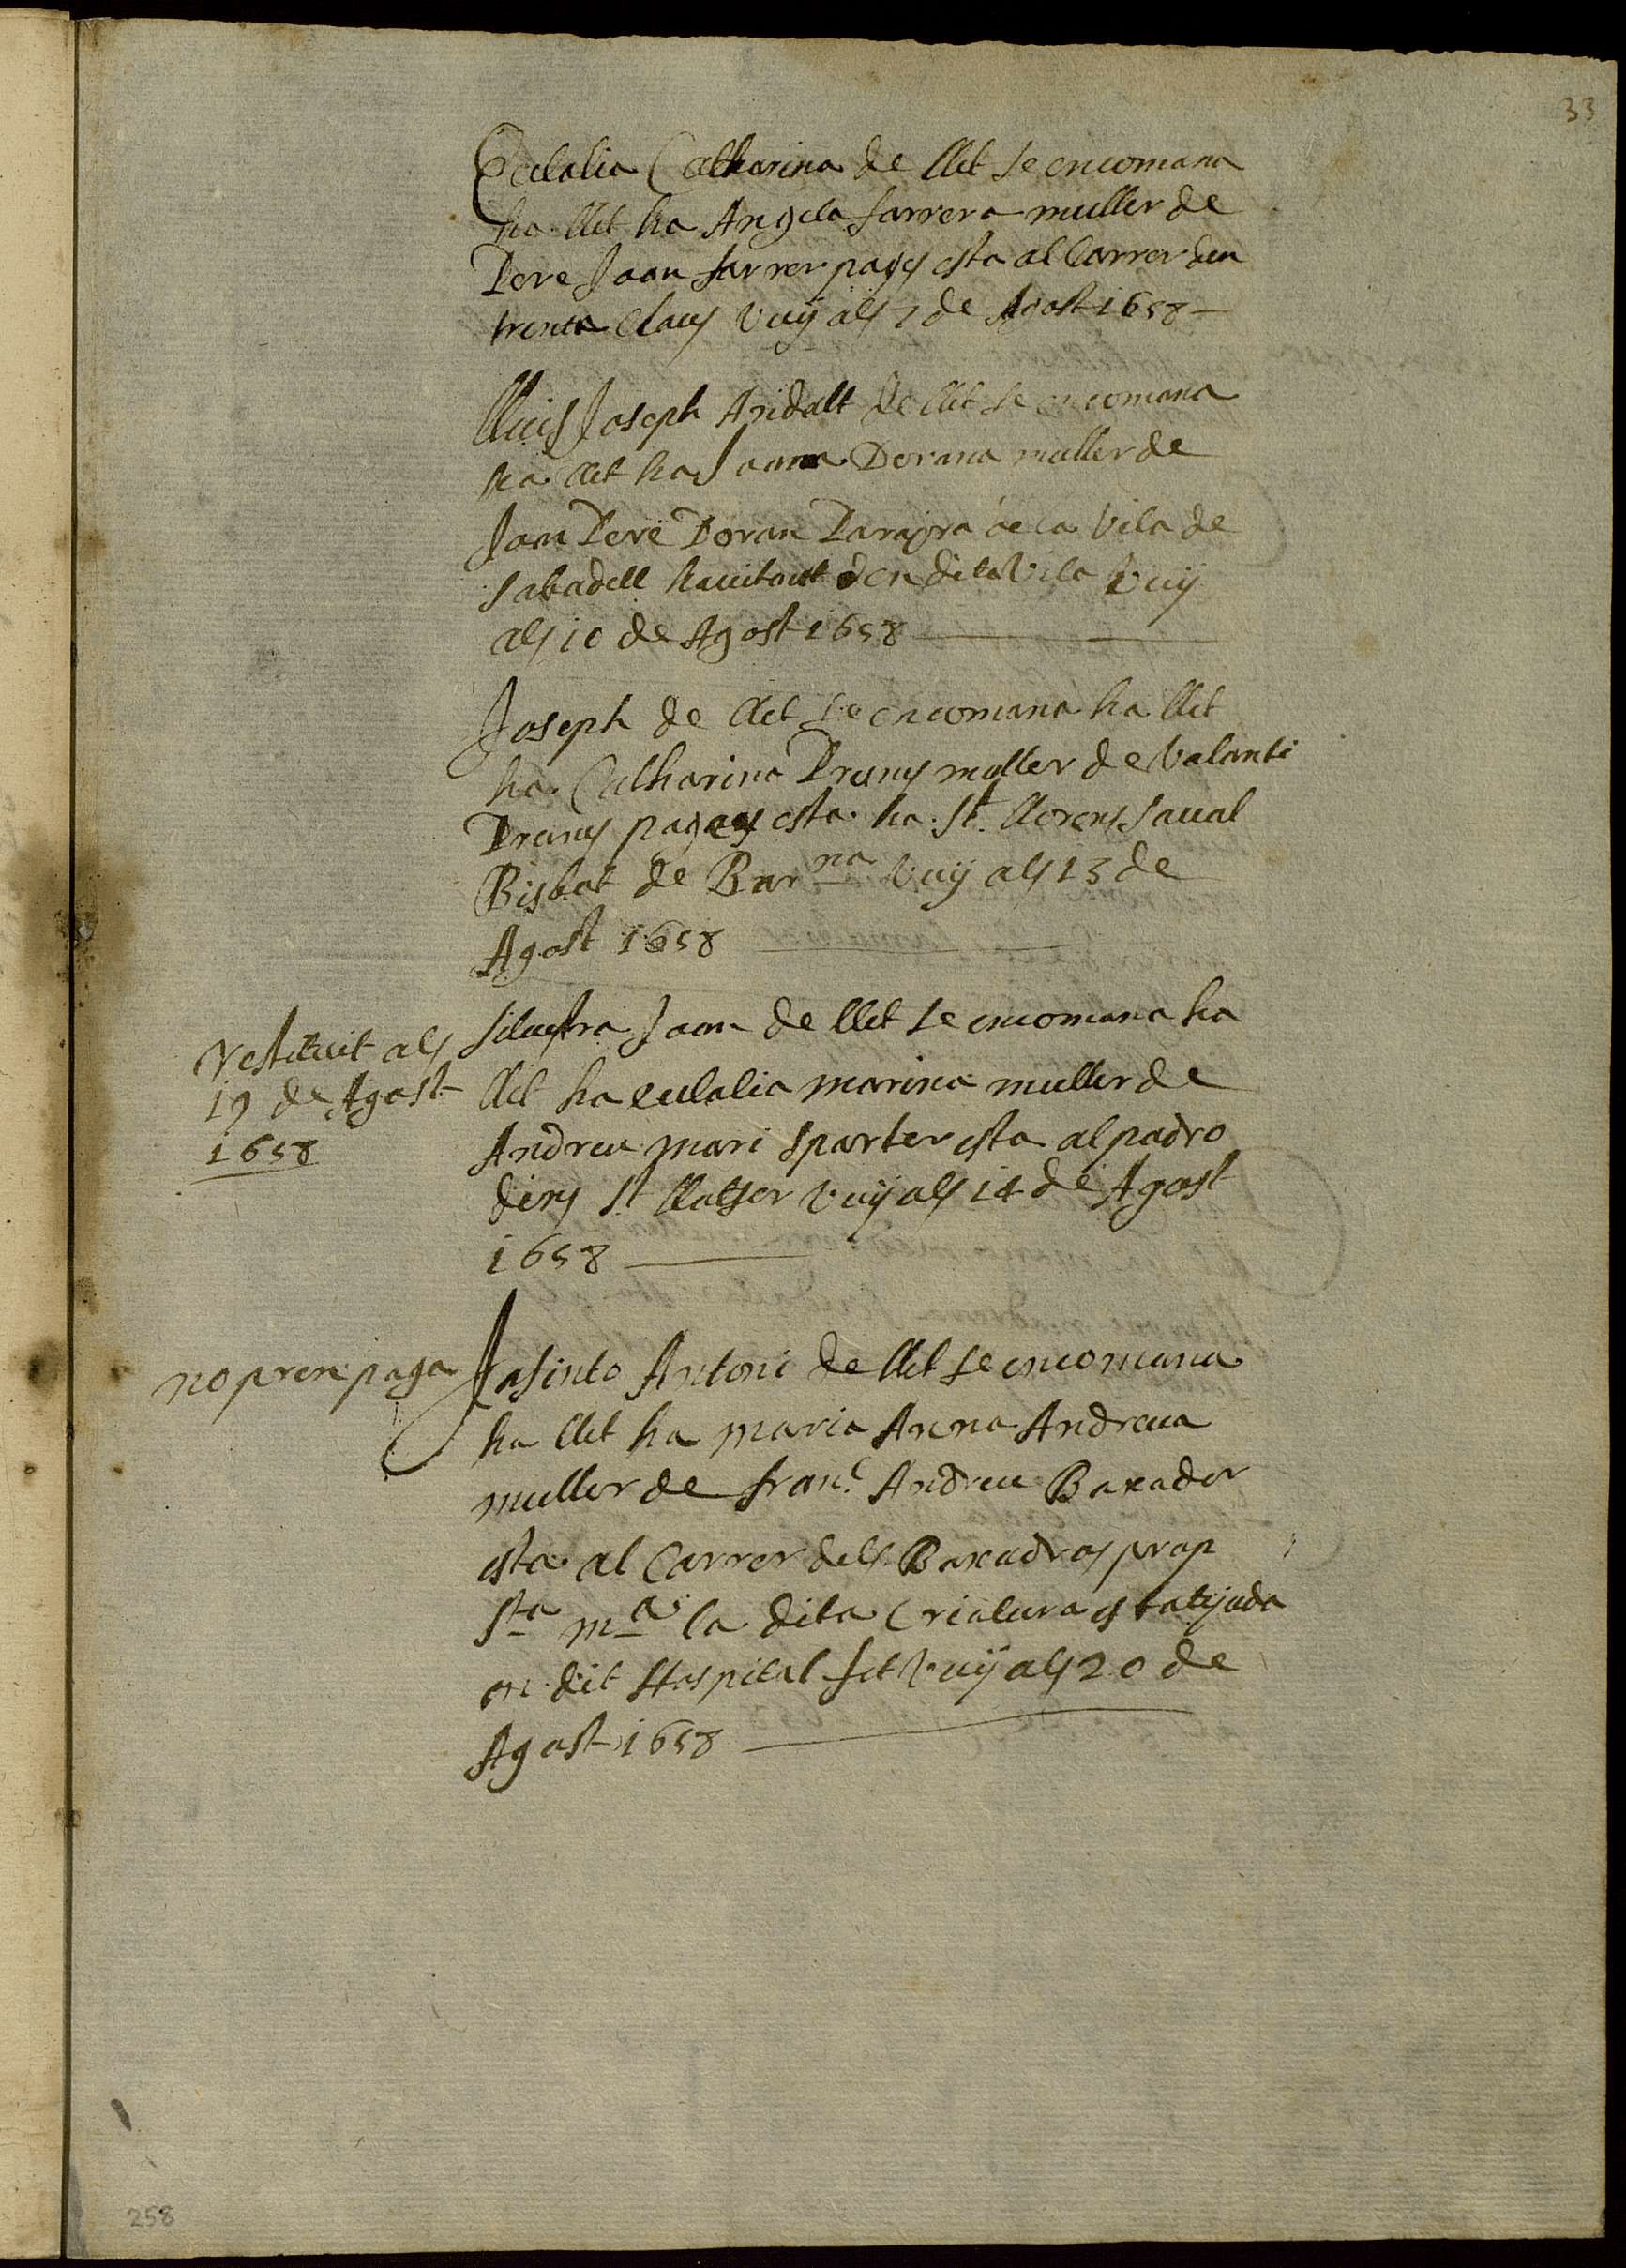 33
Eulalia Catharina de llet se encomana
ha llet ha Angela farrera muller de
Pere Joan farrer pages esta al Carrer den
trenta Claus vuÿ als 7 de Agost 1658
lluis Joseph de llet se encomana
ha llet ha Joana Dorana muller de
Joan Pere Doran Parayra de la Vila de
sabadell hauitant en dita Vila vuÿ
als 10 de Agost 1658
Joseph de llet se encomana ha llet
ha Catharina Pruny muller de Valanti
Pruny pages esta ha St. llorens saual
Bisbat de Barna vuÿ als 13 de
Agost 1658
restituit als
19 de Agost
1658
siluestra Joan de llet se encomana ha
llet ha eulalia marina muller de
Andreu mari sparter esta al padro
dins St llatser vuÿ als 14 de Agost
1658
no pren paga
Jasinto Antoni de llet se encomana
ha llet ha maria Anna Andreua
muller de franc. Andreu Baxador
esta al Carrer dels Baxadros prop
Sta ma la dita Criatura es batÿada
en dit Hospital fet vuÿ als 20 de
Agost 1658
258